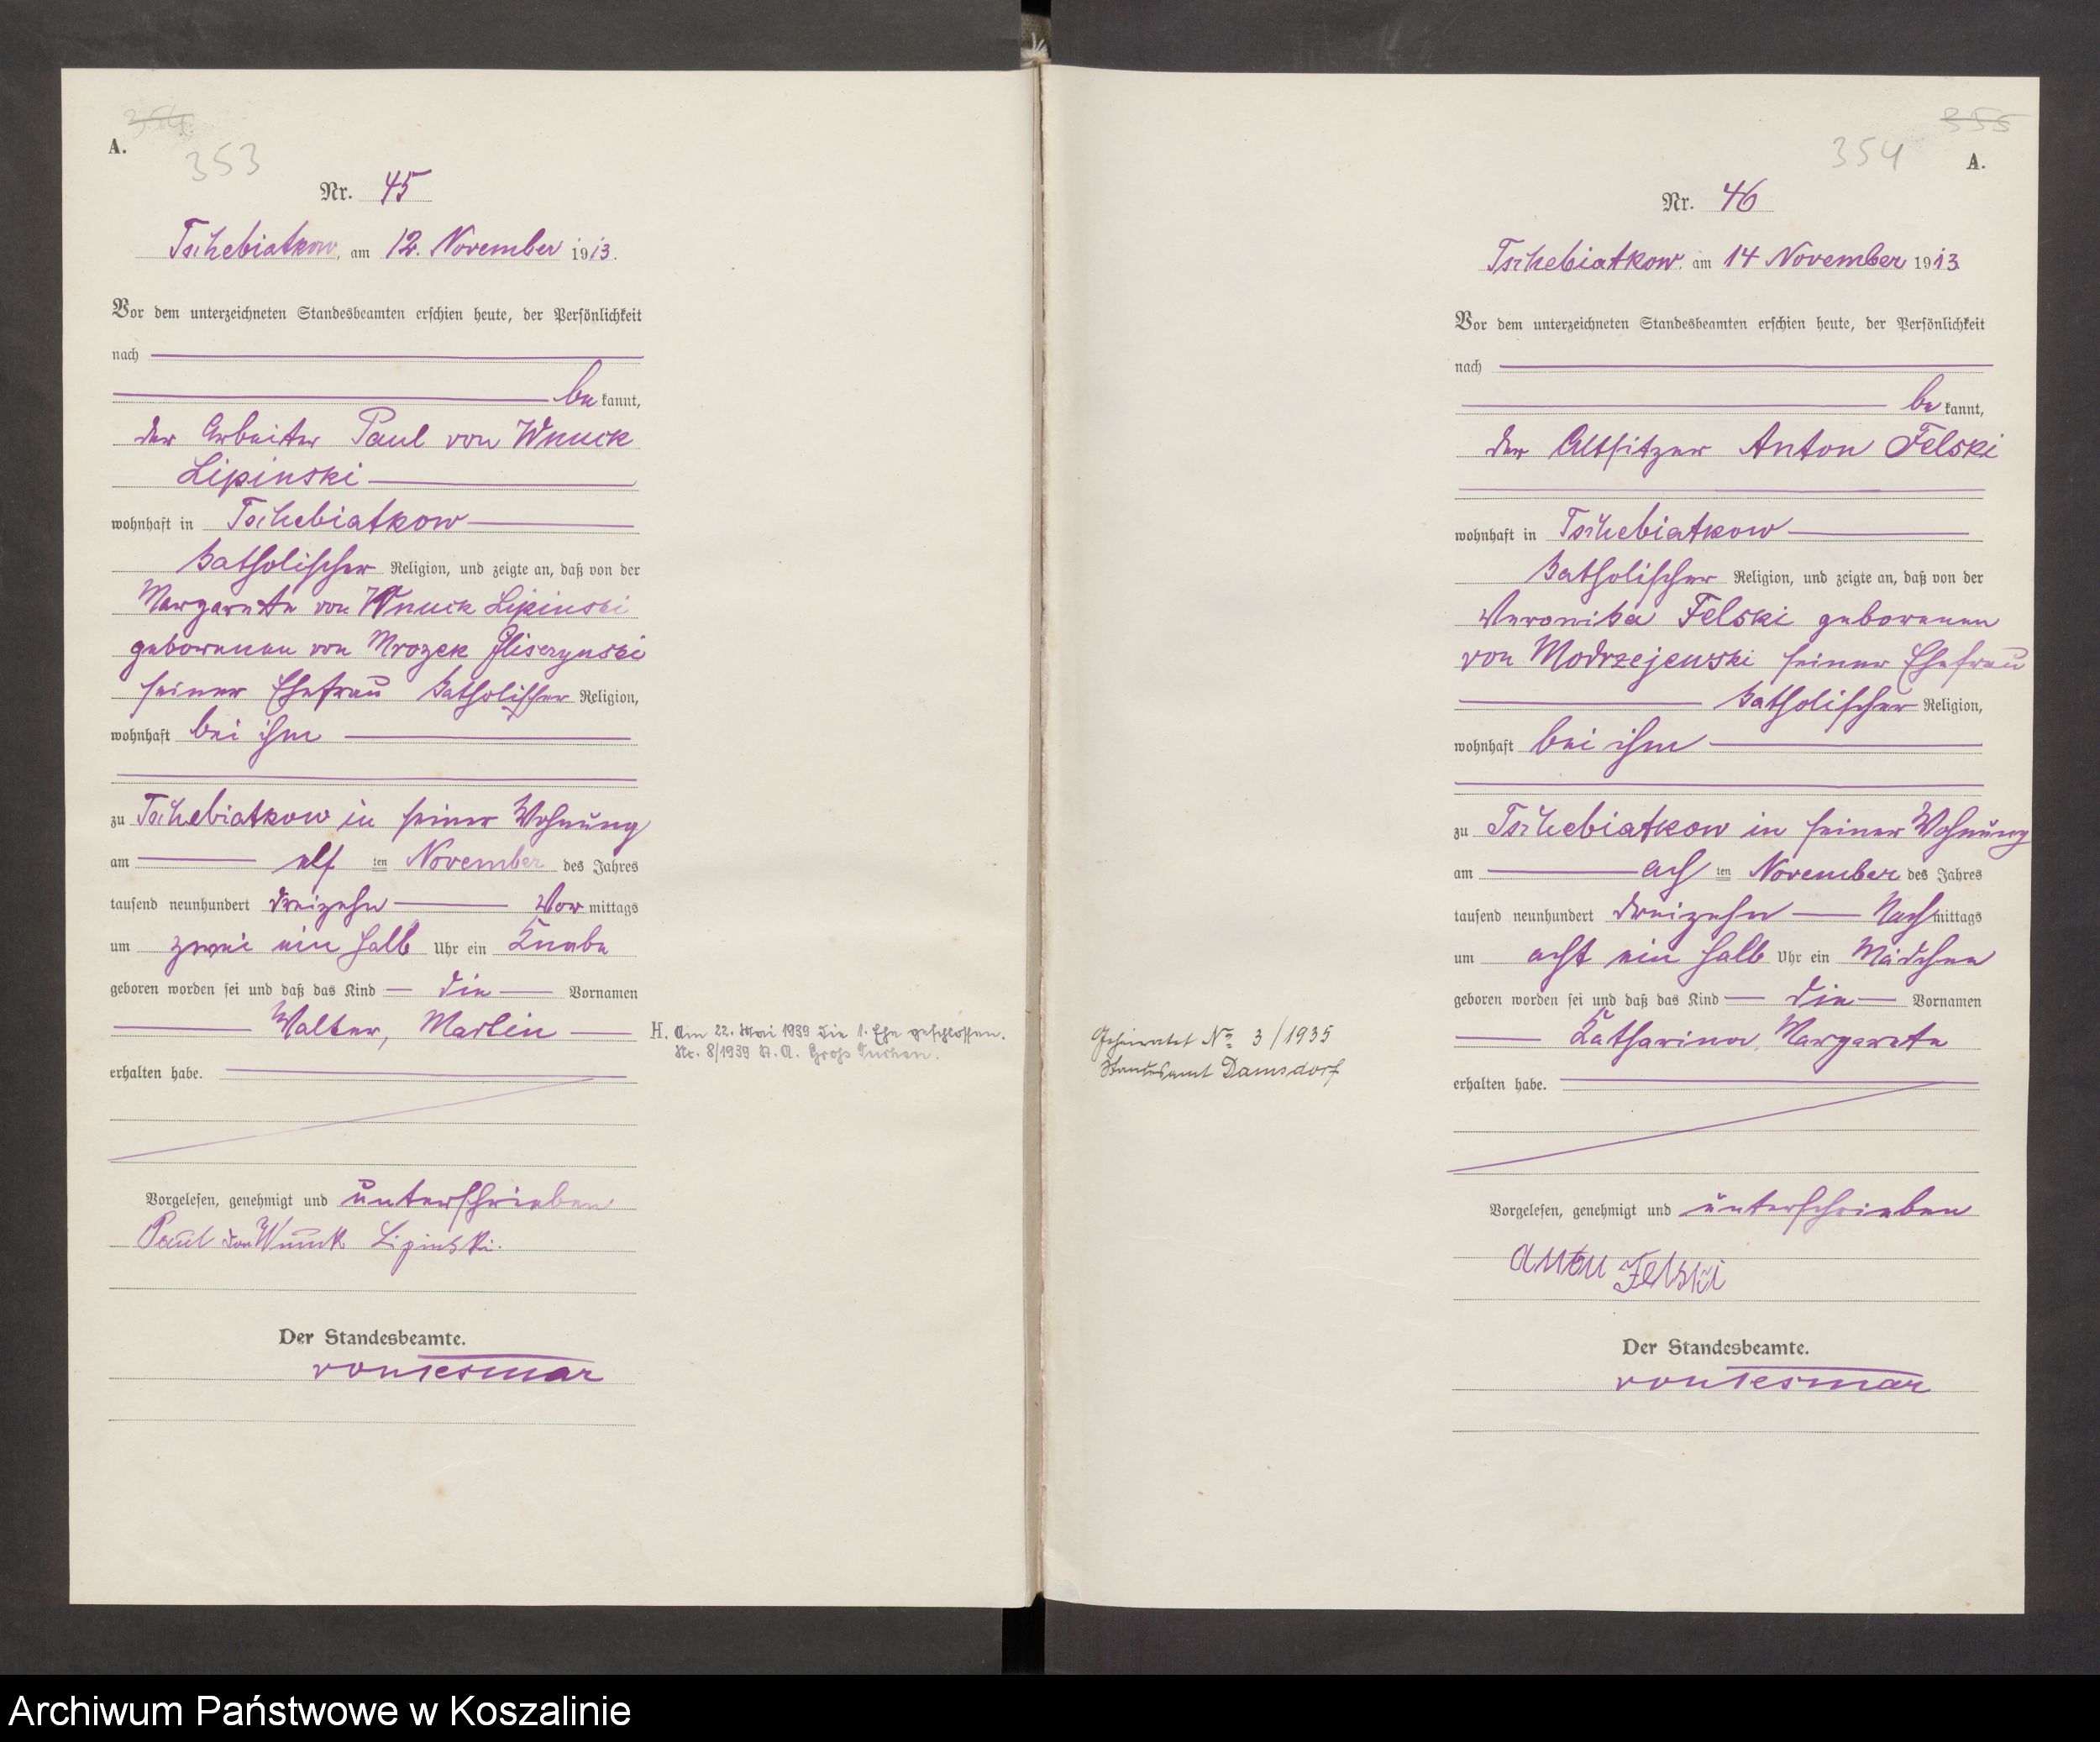 354
A.
353
Nr. 45
Tschebiatkow, am 12. November 1913.
Vor dem unterzeichneten Standesbeamten erschien heute, der Persönlichkeit
nach
be kannt,
der Arbeiter Paul von Wnuck
Lipinski
wohnhaft in Tschebiatkow
katholischer Religion, und zeigte an, daß von der
Margarete von Wnuck Lipinski
geborenen von Mrozek Gliszynski
seiner Ehefrau katholischer Religion,
wohnhaft bei ihm
zu Tschebiatkow in seiner Wohnung
am elf ten November des Jahres
tausend neunhundert dreizehn Vor mittags
um zwei ein halb Uhr ein Knabe
geboren worden sei und daß das Kind die Vornamen
Walter, Martin
erhalten habe.
H. Am 22. Mai 1939 die 1. Ehe geschlossen.
Nr. 8/1939 St. A. Groß Tuchen.
Vorgelesen, genehmigt und unterschrieben
Paul von Wnuk Lipinski.
Der Standesbeamte.
von Tesmar
355
354
A.
Nr. 46
Tschebiatkow, am 14 November 1913
Vor dem unterzeichneten Standesbeamten erschien heute, der Persönlichkeit
nach
be kannt,
der Altsitzer Anton Felski
wohnhaft in Tschebiatkow
katholischer Religion, und zeigte an, daß von der
Veronika Felski geborenen
von Modrzejewski seiner Ehefrau
katholischer Religion,
wohnhaft bei ihm
zu Tschebiatkow in seiner Wohnung
am ach ten November des Jahres
tausend neunhundert dreizehn Nach mittags
um acht ein halb Uhr ein Mädchen
geboren worden sei und daß das Kind die Vornamen
Katharina, Margarete
erhalten habe.
Geheiratet No 3/1935
Standesamt Damsdorf
Vorgelesen, genehmigt und unterschrieben
Anton Felski
Der Standesbeamte.
von Tesmar
Archiwum Państwowe w Koszalinie